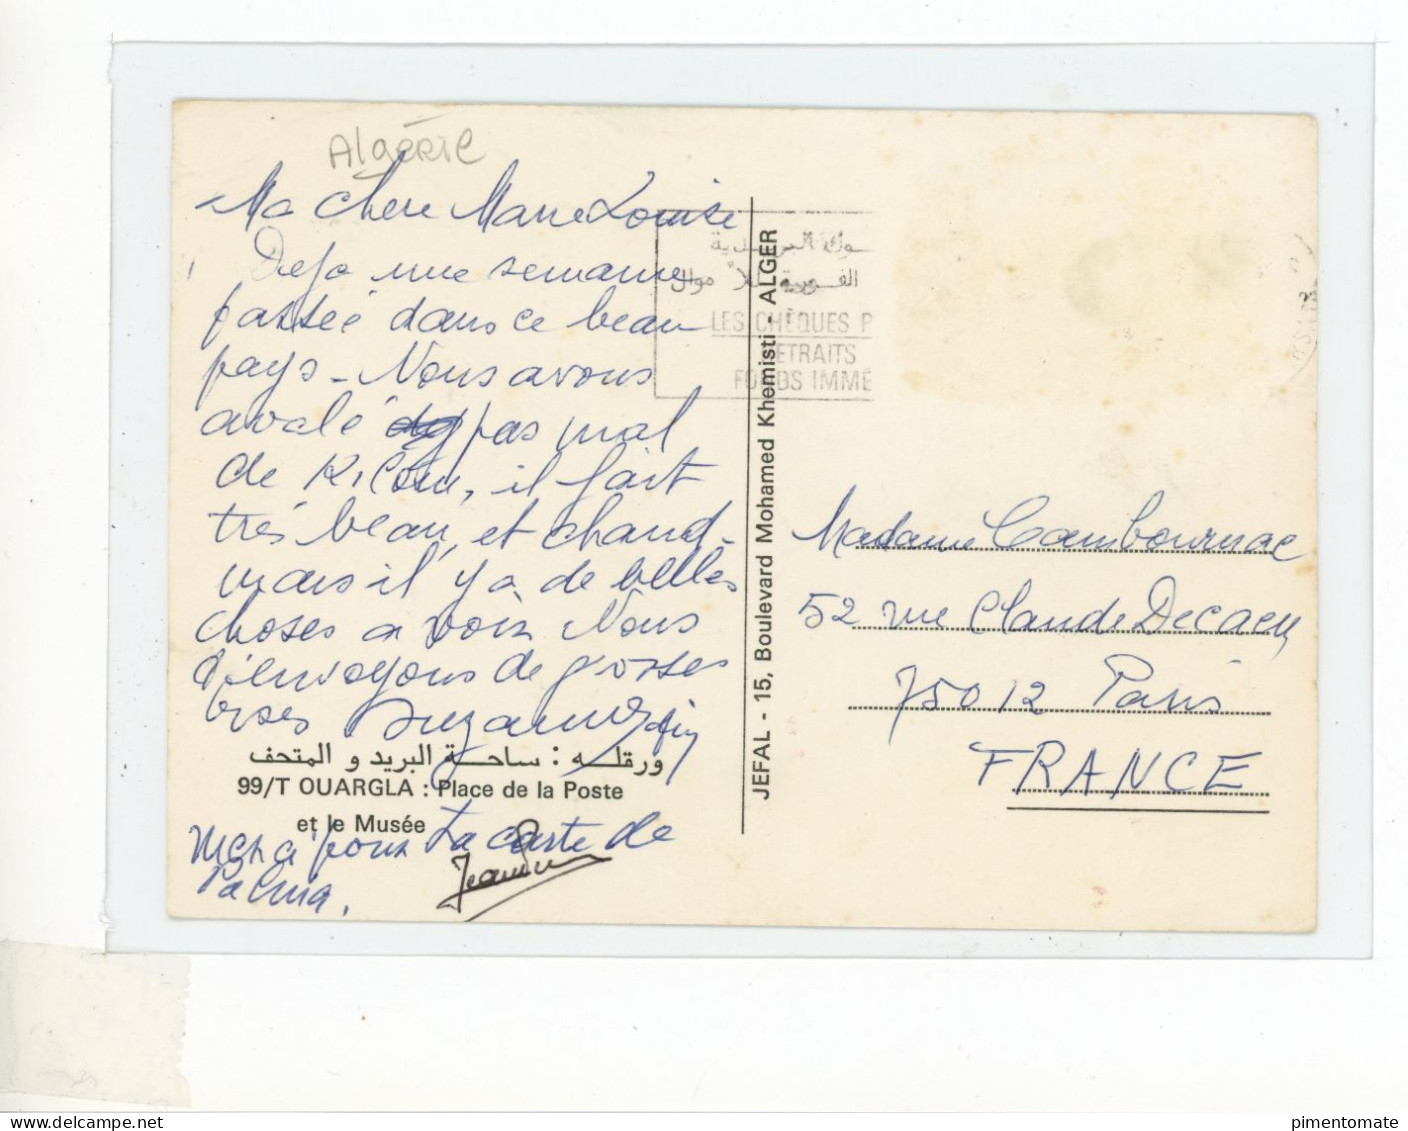 Algérie
Ma chere Marie Louise
Deja une semaine
passée dans ce beau
pays - Nous avons
avalé pas mal
de Kilom, il fait
très beau, et chaud -
mais il y a de belles
choses a voir Nous
t'envoyons de grosses
bises Suzanne
ورقلـــه : ساحـــة البريد و المتحف
99/T OUARGLA : Place de la Poste
et le Musée
Merci pour la carte de
Palma.
JEFAL - 15, Boulevard Mohamed Khemisti - ALGER
LES CHÈQUES P
ETRAITS
FONDS IMMÉ
Madame Cambournac
52 rue Claude Decaen
75012 Paris
FRANCE
pimentomate